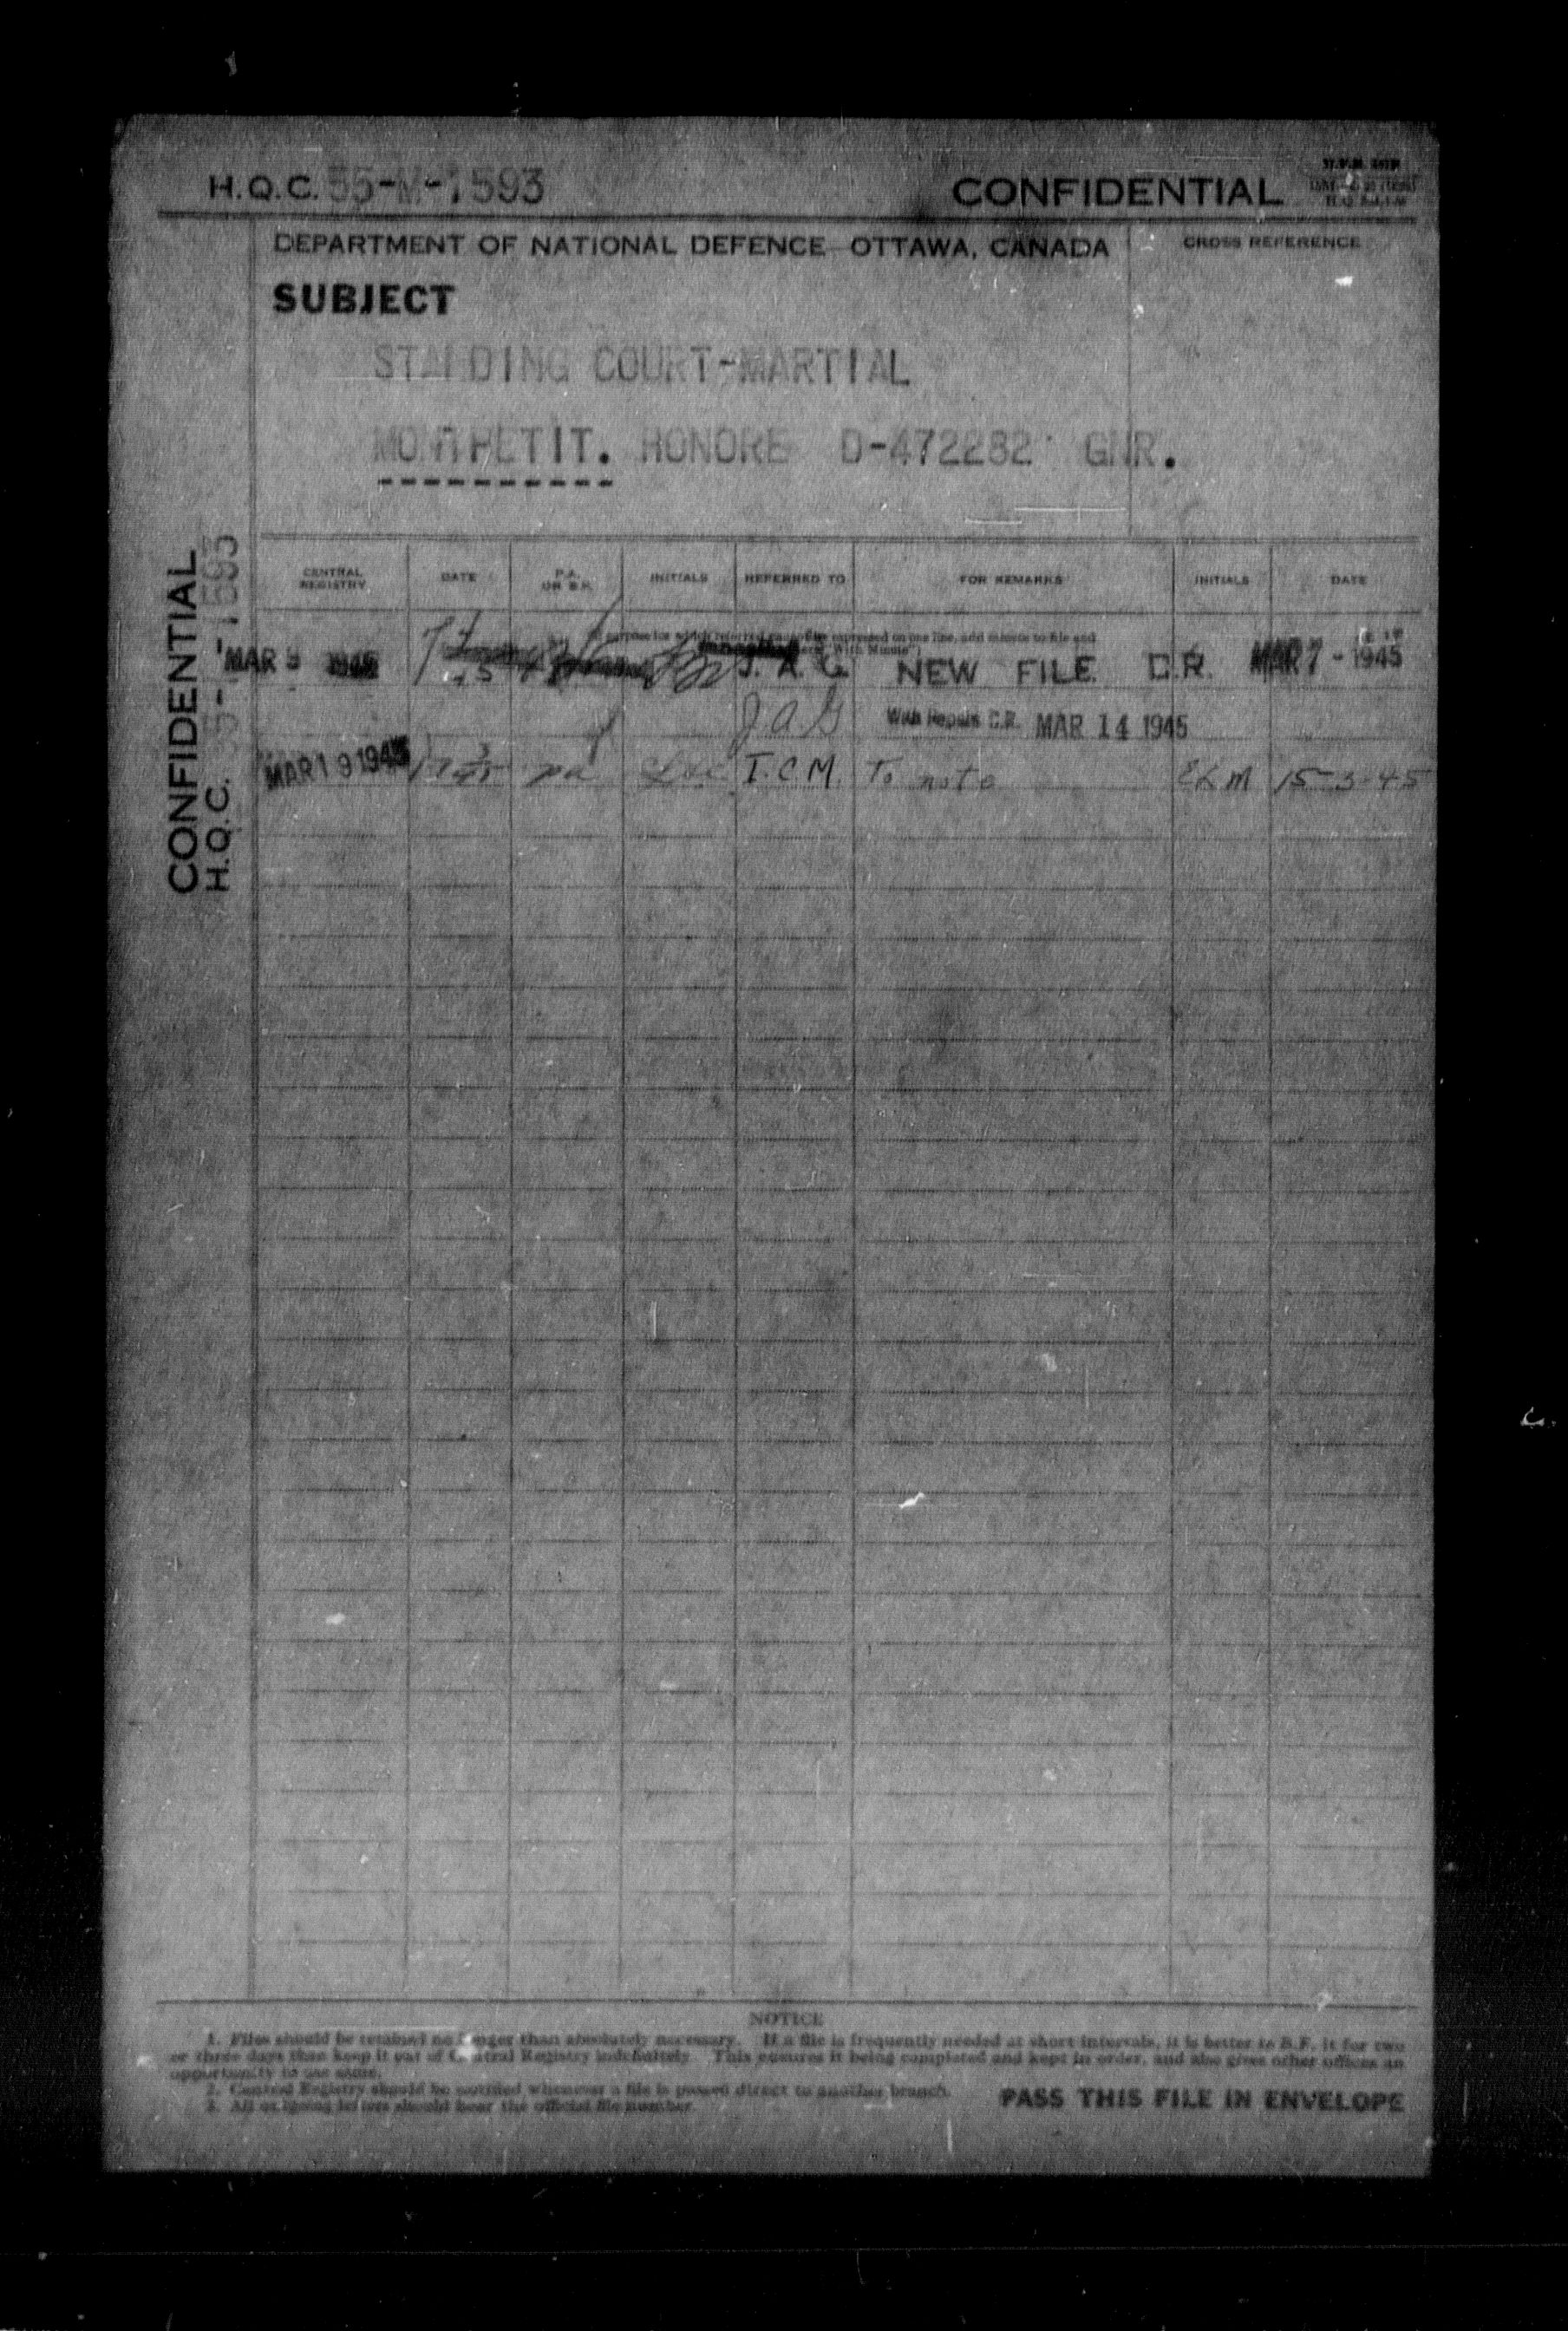 H.Q.C. 55-M-1593
CONFIDENTIAL
DEPARTMENT OF NATIONAL DEFENCE OTTAWA, CANADA
CROSS REFERENCE
SUBJECT
STANDING COURT-MARTIAL
MONTPETIT. HONORE D-472282 GNR.
CONFIDENTIAL
H.Q.C. 55-M-1593
CENTRAL REGISTRY
DATE
P.A. OR B.F.
INITIALS
REFERRED TO
FOR REMARKS
INITIALS
DATE
MAR 9 1945 J.A.G. NEW FILE C.R. MAR 7 - 1945
J.A.G With Papers C.R. MAR 14 1945
MAR 19 1945 pa I.C.M. To note ELM 15-3-45
NOTICE
1. Files should be retained no longer than absolutely necessary. If a file is frequently needed at short intervals, it is better to B.F. it for two
or three days than keep it out of Central Registry indefinitely. This ensures it being completed and kept in order, and also gives other offices an
opportunity to use same.
2. Central Registry should be notified whenever a file is passed direct to another branch.
3. All outgoing letters should bear the official file number.
PASS THIS FILE IN ENVELOPE